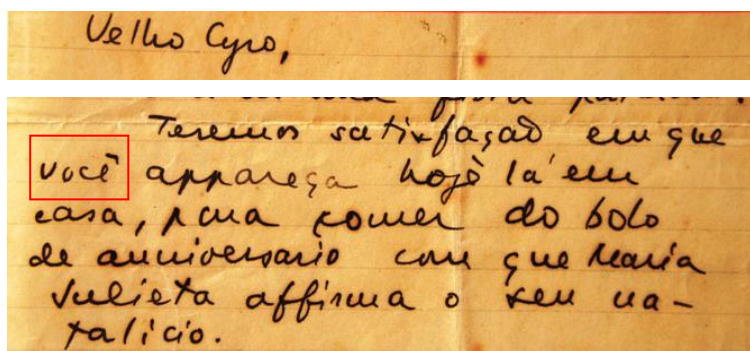 Velho Cyro,
Teremos satisfação em que
você appareça hoje lá em
casa, para comer do bolo
de anniversario com que Maria
Julieta affirma o seu na-
talicio.